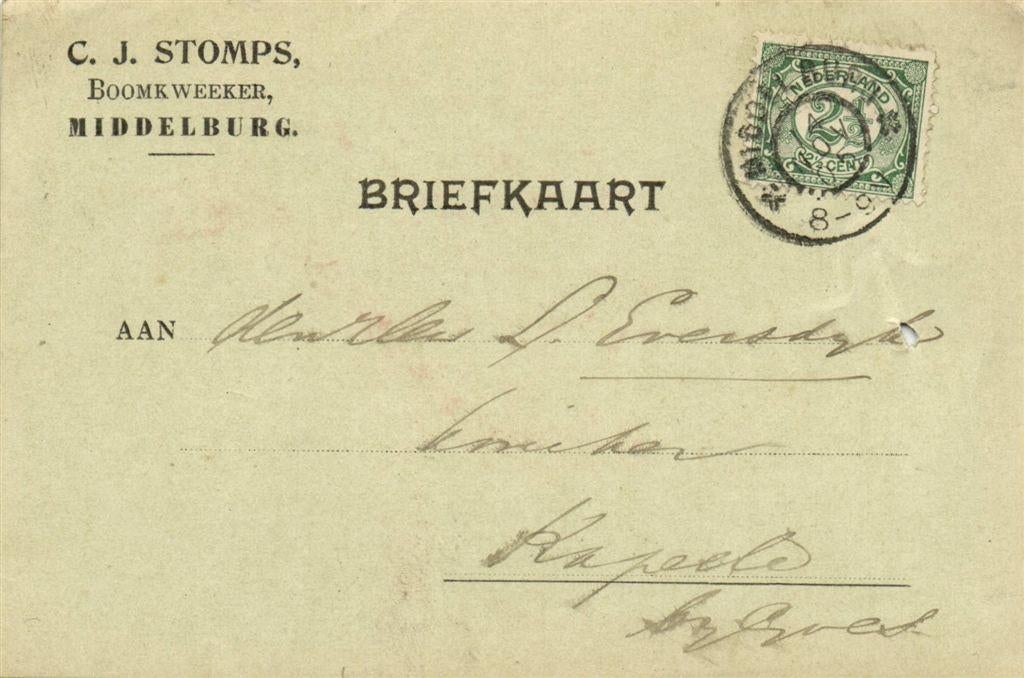 C. J. STOMPS,
BOOMKWEEKER,
MIDDELBURG.
NEDERLAND
2½
2½ CENT
MIDDELBURG
8-9
BRIEFKAART
AAN den Heer D. Eversdyk
kweeker
Kapelle
by Goes.